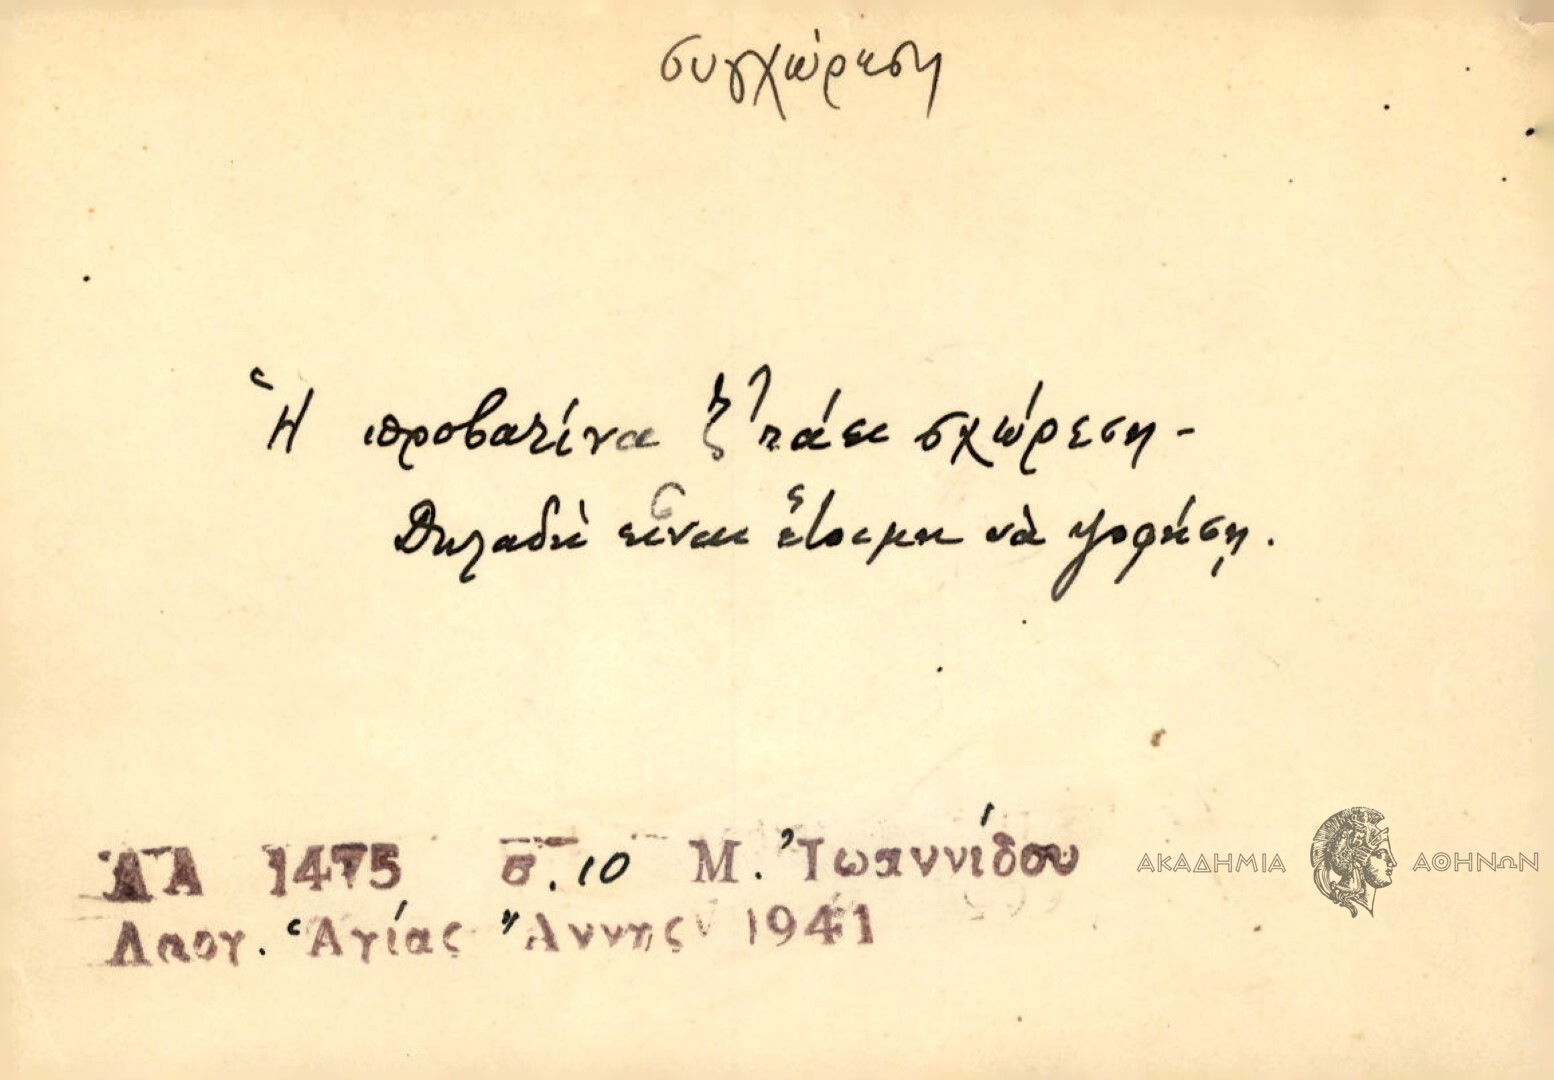 συγχώρηση
Ἡ προβατίνα ζ'τάει σχώρεση -
Δηλαδὴ εἶναι ἕτοιμη νὰ ψοφήσῃ.
ΛΑ 1475 σ. 10 Μ. Ἰωαννίδου
Λαογ. Ἁγίας Ἄννης 1941
ΑΚΑΔΗΜΙΑ ΑΘΗΝΩΝ